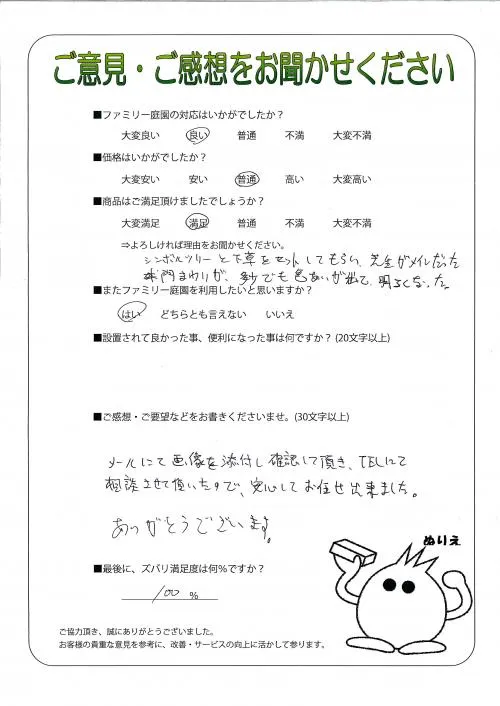 ご意見・ご感想をお聞かせください
■ファミリー庭園の対応はいかがでしたか？
大変良い 良い 普通 不満 大変不満
■価格はいかがでしたか？
大変安い 安い 普通 高い 大変高い
■商品はご満足頂けましたでしょうか？
大変満足 満足 普通 不満 大変不満
⇒よろしければ理由をお聞かせください。
シンボルツリーと下草をセットしてもらい、
門まわりが、でも色あいが出て、明るくなった。
■またファミリー庭園を利用したいと思いますか？
はい どちらとも言えない いいえ
■設置されて良かった事、便利になった事は何ですか？(20文字以上)
■ご感想・ご要望などをお書きくださいませ。(30文字以上)
メールにて画像を添付し確認して頂き、TELにて
相談させて頂いたので、安心してお任せ出来ました。
ありがとうございます。
ぬりえ
■最後に、ズバリ満足度は何%ですか？
100 %
ご協力頂き、誠にありがとうございました。
お客様の貴重な意見を参考に、改善・サービスの向上に活かして参ります。